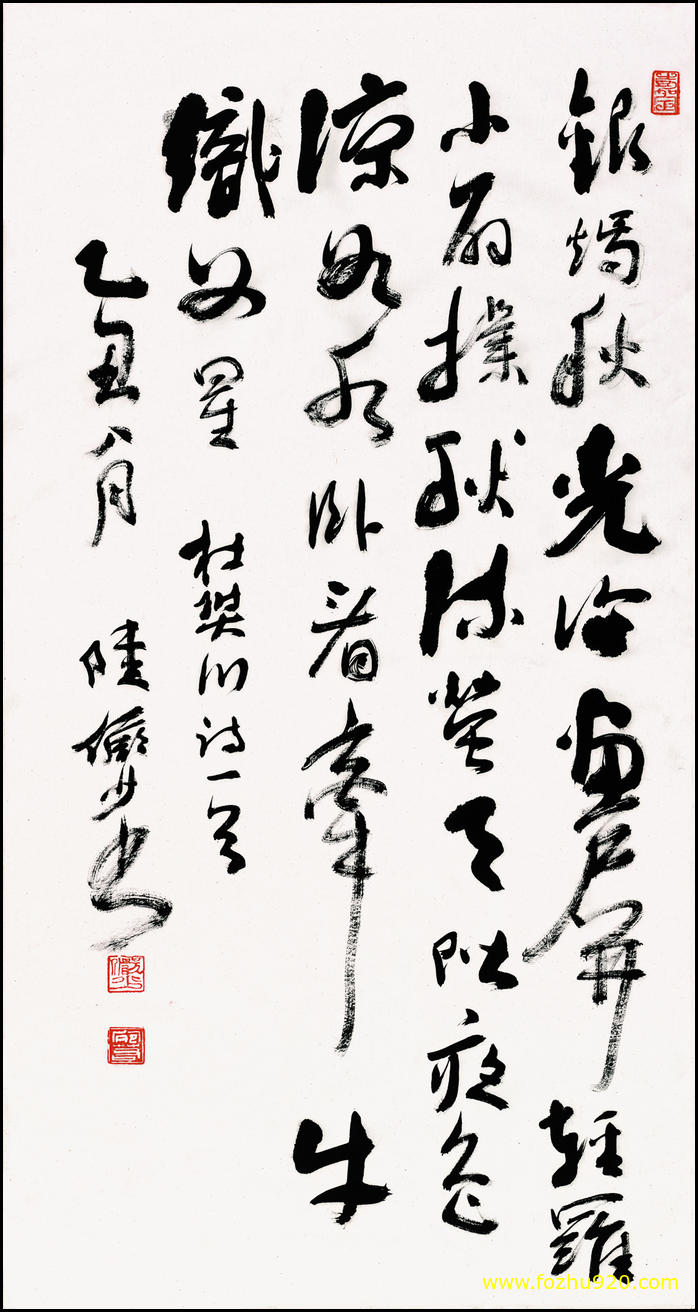 銀燭秋光冷畫屏輕羅
小扇撲流螢天階夜色
涼如水臥看牽牛
織女星 杜樊川詩一首
乙丑八月 陸儼少書
www.fozhu920.com